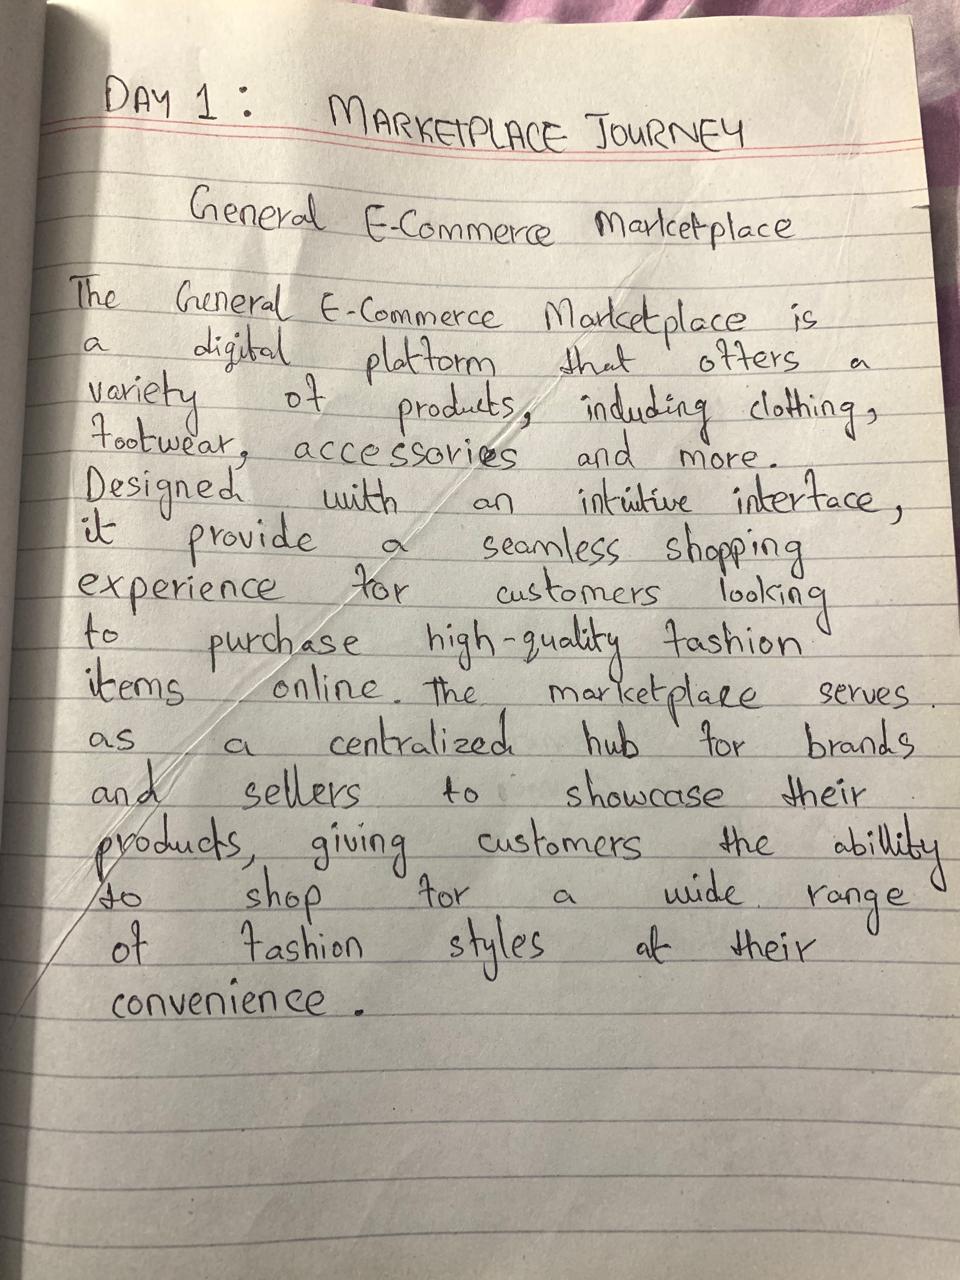 DAY 1 : MARKETPLACE JOURNEY
General E-Commerce Marketplace
The General E-Commerce Marketplace is
a digital platform that offers a
variety of products, including clothing,
footwear, accessories and more.
Designed with an intuitive interface,
it provide a seamless shopping
experience for customers looking
to purchase high-quality fashion
items online. The marketplace serves
as a centralized hub for brands
and sellers to showcase their
products, giving customers the abillity
to shop for a wide range
of fashion styles at their
convenience.